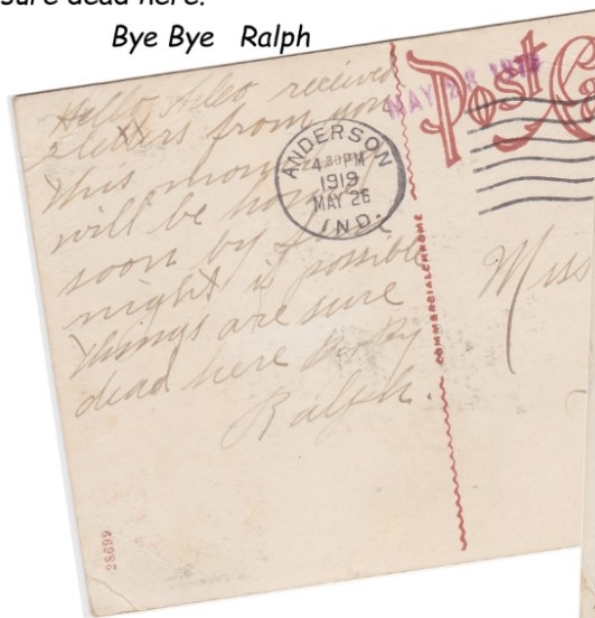 sure dead here.
Bye Bye Ralph
Hello received
2 letters from you
this
will be home
soon by
night if possible
things are sure
dead here By By
Ralph.
ANDERSON
4 30 PM
1919
MAY 26
IND.
MAY 28 1919
Post Ca
COMMERCIALCHROME
Miss
28699